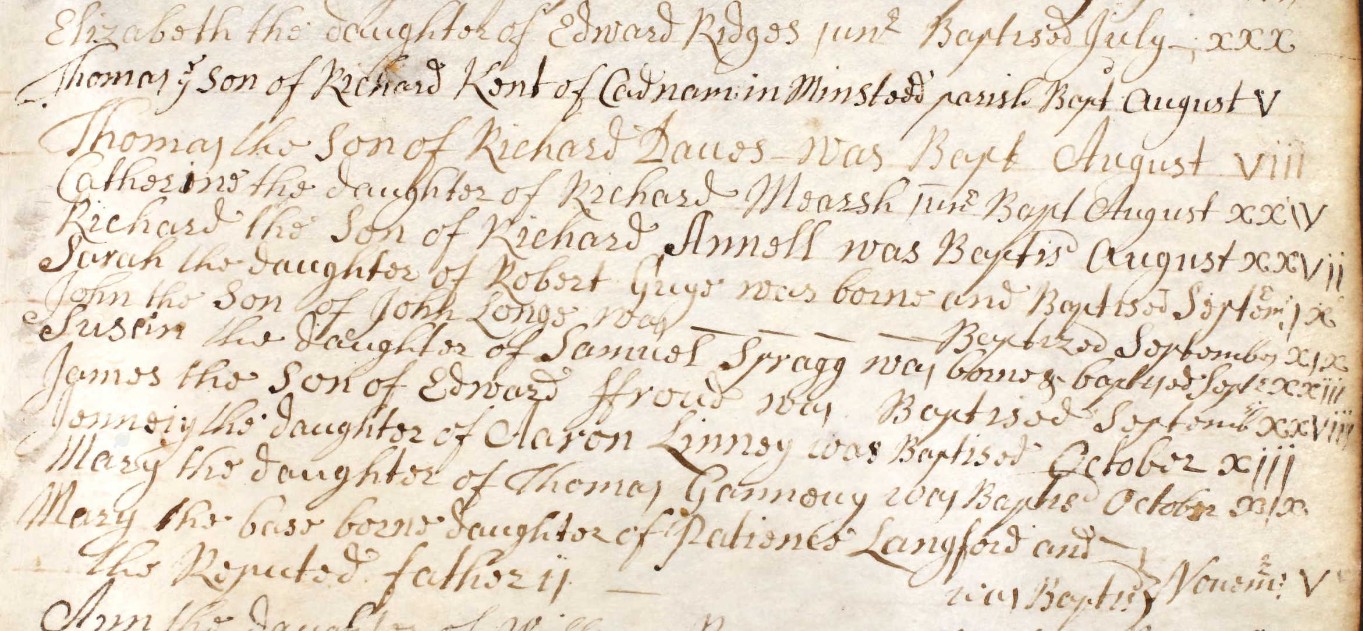 Elizabeth the daughter of Edward Ridges junr Baptised July xxx
Thomas ye Son of Richard Kent of Cadnam in Minsteed parish Bapt August V
Thomas the Son of Richard Daues was Bapt August viii
Catherine the daughter of Richard Mearsh junr Bapt August xxiv
Richard the Son of Richard Annell was Baptisd August xxvii
Sarah the daughter of Robert Guge was borne and Baptised Septemr ix
John the Son of John Longe was Baptized September xix
Susein the daughter of Samuel Spragg was borne & baptised Septr xxiii
James the Son of Edward ffroud was Baptised Septembr xxviii
the daughter of Aaron Linney was Baptised October xiii
Mary the daughter of Thomas was Baptisd October xix
Mary the base borne daughter of Patience Langford and
the Reputed father ii was Baptisd Novemr V
Ann the daughter of